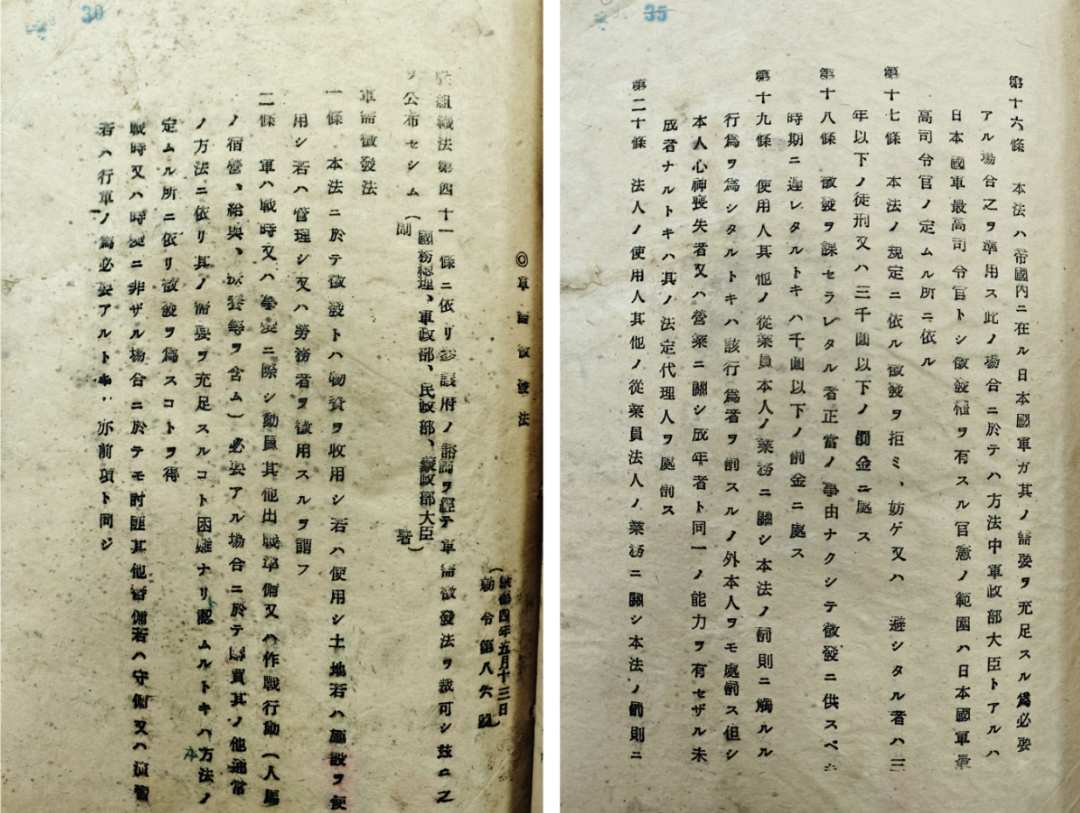 30
◎軍需徵發法
(康德四年五月十三日
勅令第八六號)
組織法第四十一條ニ依リ參議府ノ諮詢ヲ經テ軍需徵發法ヲ裁可シ茲ニ之
ヲ公布セシム(副
國務總理、軍政部、民政部、蒙政部大臣
署)
軍需徵發法
一條 本法ニ於テ徵發トハ物資ヲ收用シ若ハ使用シ土地若ハ施設ヲ使
用シ若ハ管理シ又ハ勞務者ヲ徵用スルヲ謂フ
二條 軍ハ戰時又ハ事變ニ際シ動員其他出戰準備又ハ作戰行動(人馬
ノ宿營、給與、等ヲ含ム)必要アル場合ニ於テ購買其ノ他通常
ノ方法ニ依リ其ノ需要ヲ充足スルコト困難ナリ認ムルトキハ方法ノ
定ムル所ニ依リ徵發ヲ爲スコトヲ得
戰時又ハ時變ニ非ザル場合ニ於テモ討匪其他警備若ハ守備又ハ演習
若ハ行軍ノ爲必要アルトキ亦前項ト同ジ
35
第十六條 本法ハ帝國內ニ在ル日本國軍ガ其ノ需要ヲ充足スル爲必要
アル場合之ヲ準用ス此ノ場合ニ於テハ方法中軍政部大臣トアルハ
日本國軍最高司令官トシ徵發權ヲ有スル官憲ノ範圍ハ日本國軍最
高司令官ノ定ムル所ニ依ル
第十七條 本法ノ規定ニ依ル徵發ヲ拒ミ、妨ゲ又ハ 避シタル者ハ三
年以下ノ徒刑又ハ三千圓以下ノ罰金ニ處ス
第十八條 徵發ヲ課セラレタル者正當ノ事由ナクシテ徵發ニ供スベキ
時期ニ遲レタルトキハ千圓以下ノ罰金ニ處ス
第十九條 使用人其他ノ從業員本人ノ業務ニ關シ本法ノ罰則ニ觸ルル
行爲ヲ爲シタルトキハ該行爲者ヲ罰スルノ外本人ヲモ處罰ス但シ
本人心神喪失者又ハ營業ニ關シ成年者ト同一ノ能力ヲ有セザル未
成者ナルトキハ其ノ法定代理人ヲ處罰ス
第二十條 法人ノ使用人其他ノ從業員法人ノ業務ニ關シ本法ノ罰則ニ